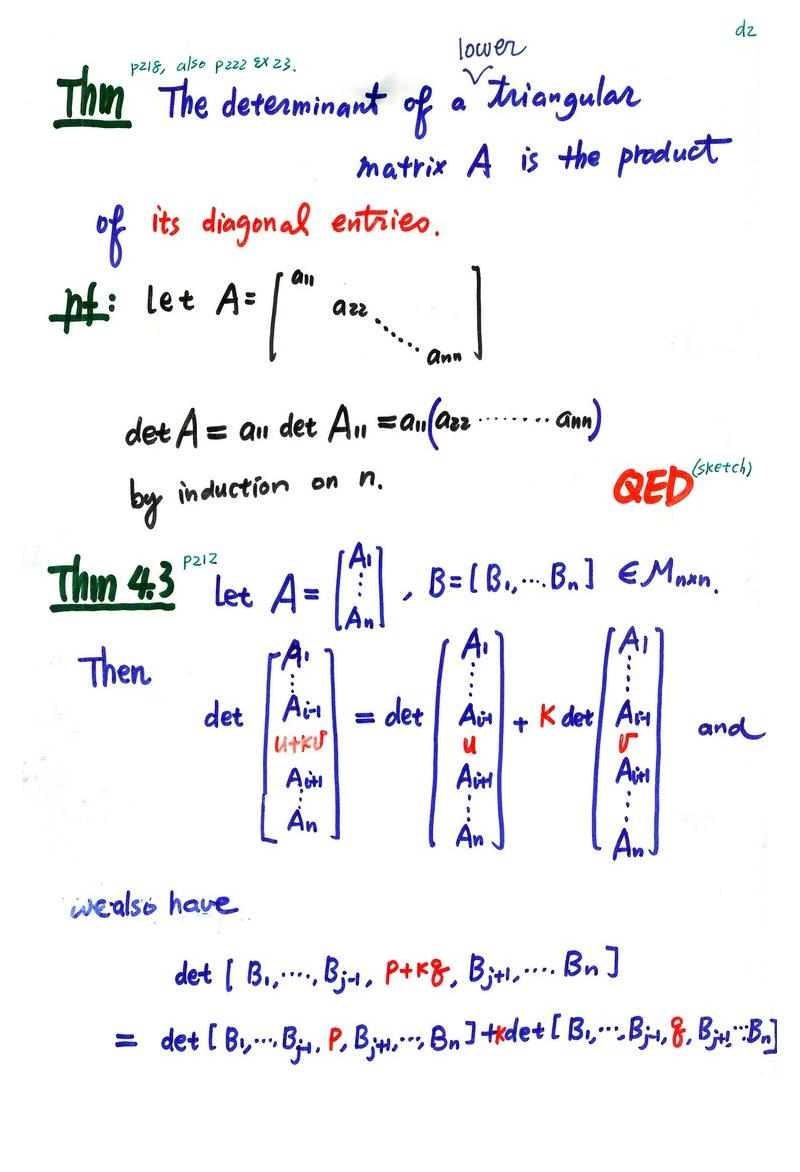 d2
p218, also p222 ex 23.
lower
Thm The determinant of a triangular
matrix A is the product
of its diagonal entries.
pf: Let A = [a11 a22 ...... ann]
det A = a11 det A11 = a11(a22 ········ ann)
by induction on n.
QED (sketch)
Thm 4.3 p212 Let A = [A1 ⋮ An], B = [B1, ···· Bn] ∈ Mn×n.
Then det [A1 ⋮ Ai-1 u+kv Ai+1 ⋮ An] = det [A1 ⋮ Ai-1 u Ai+1 ⋮ An] + k det [A1 ⋮ Ai-1 v Ai+1 ⋮ An] and
we also have
det [B1, ····, Bj-1, p+kq, Bj+1, ···· Bn]
= det [B1, ···, Bj-1, p, Bj+1, ···, Bn] + k det [B1, ···, Bj-1, q, Bj+1, ··· Bn]